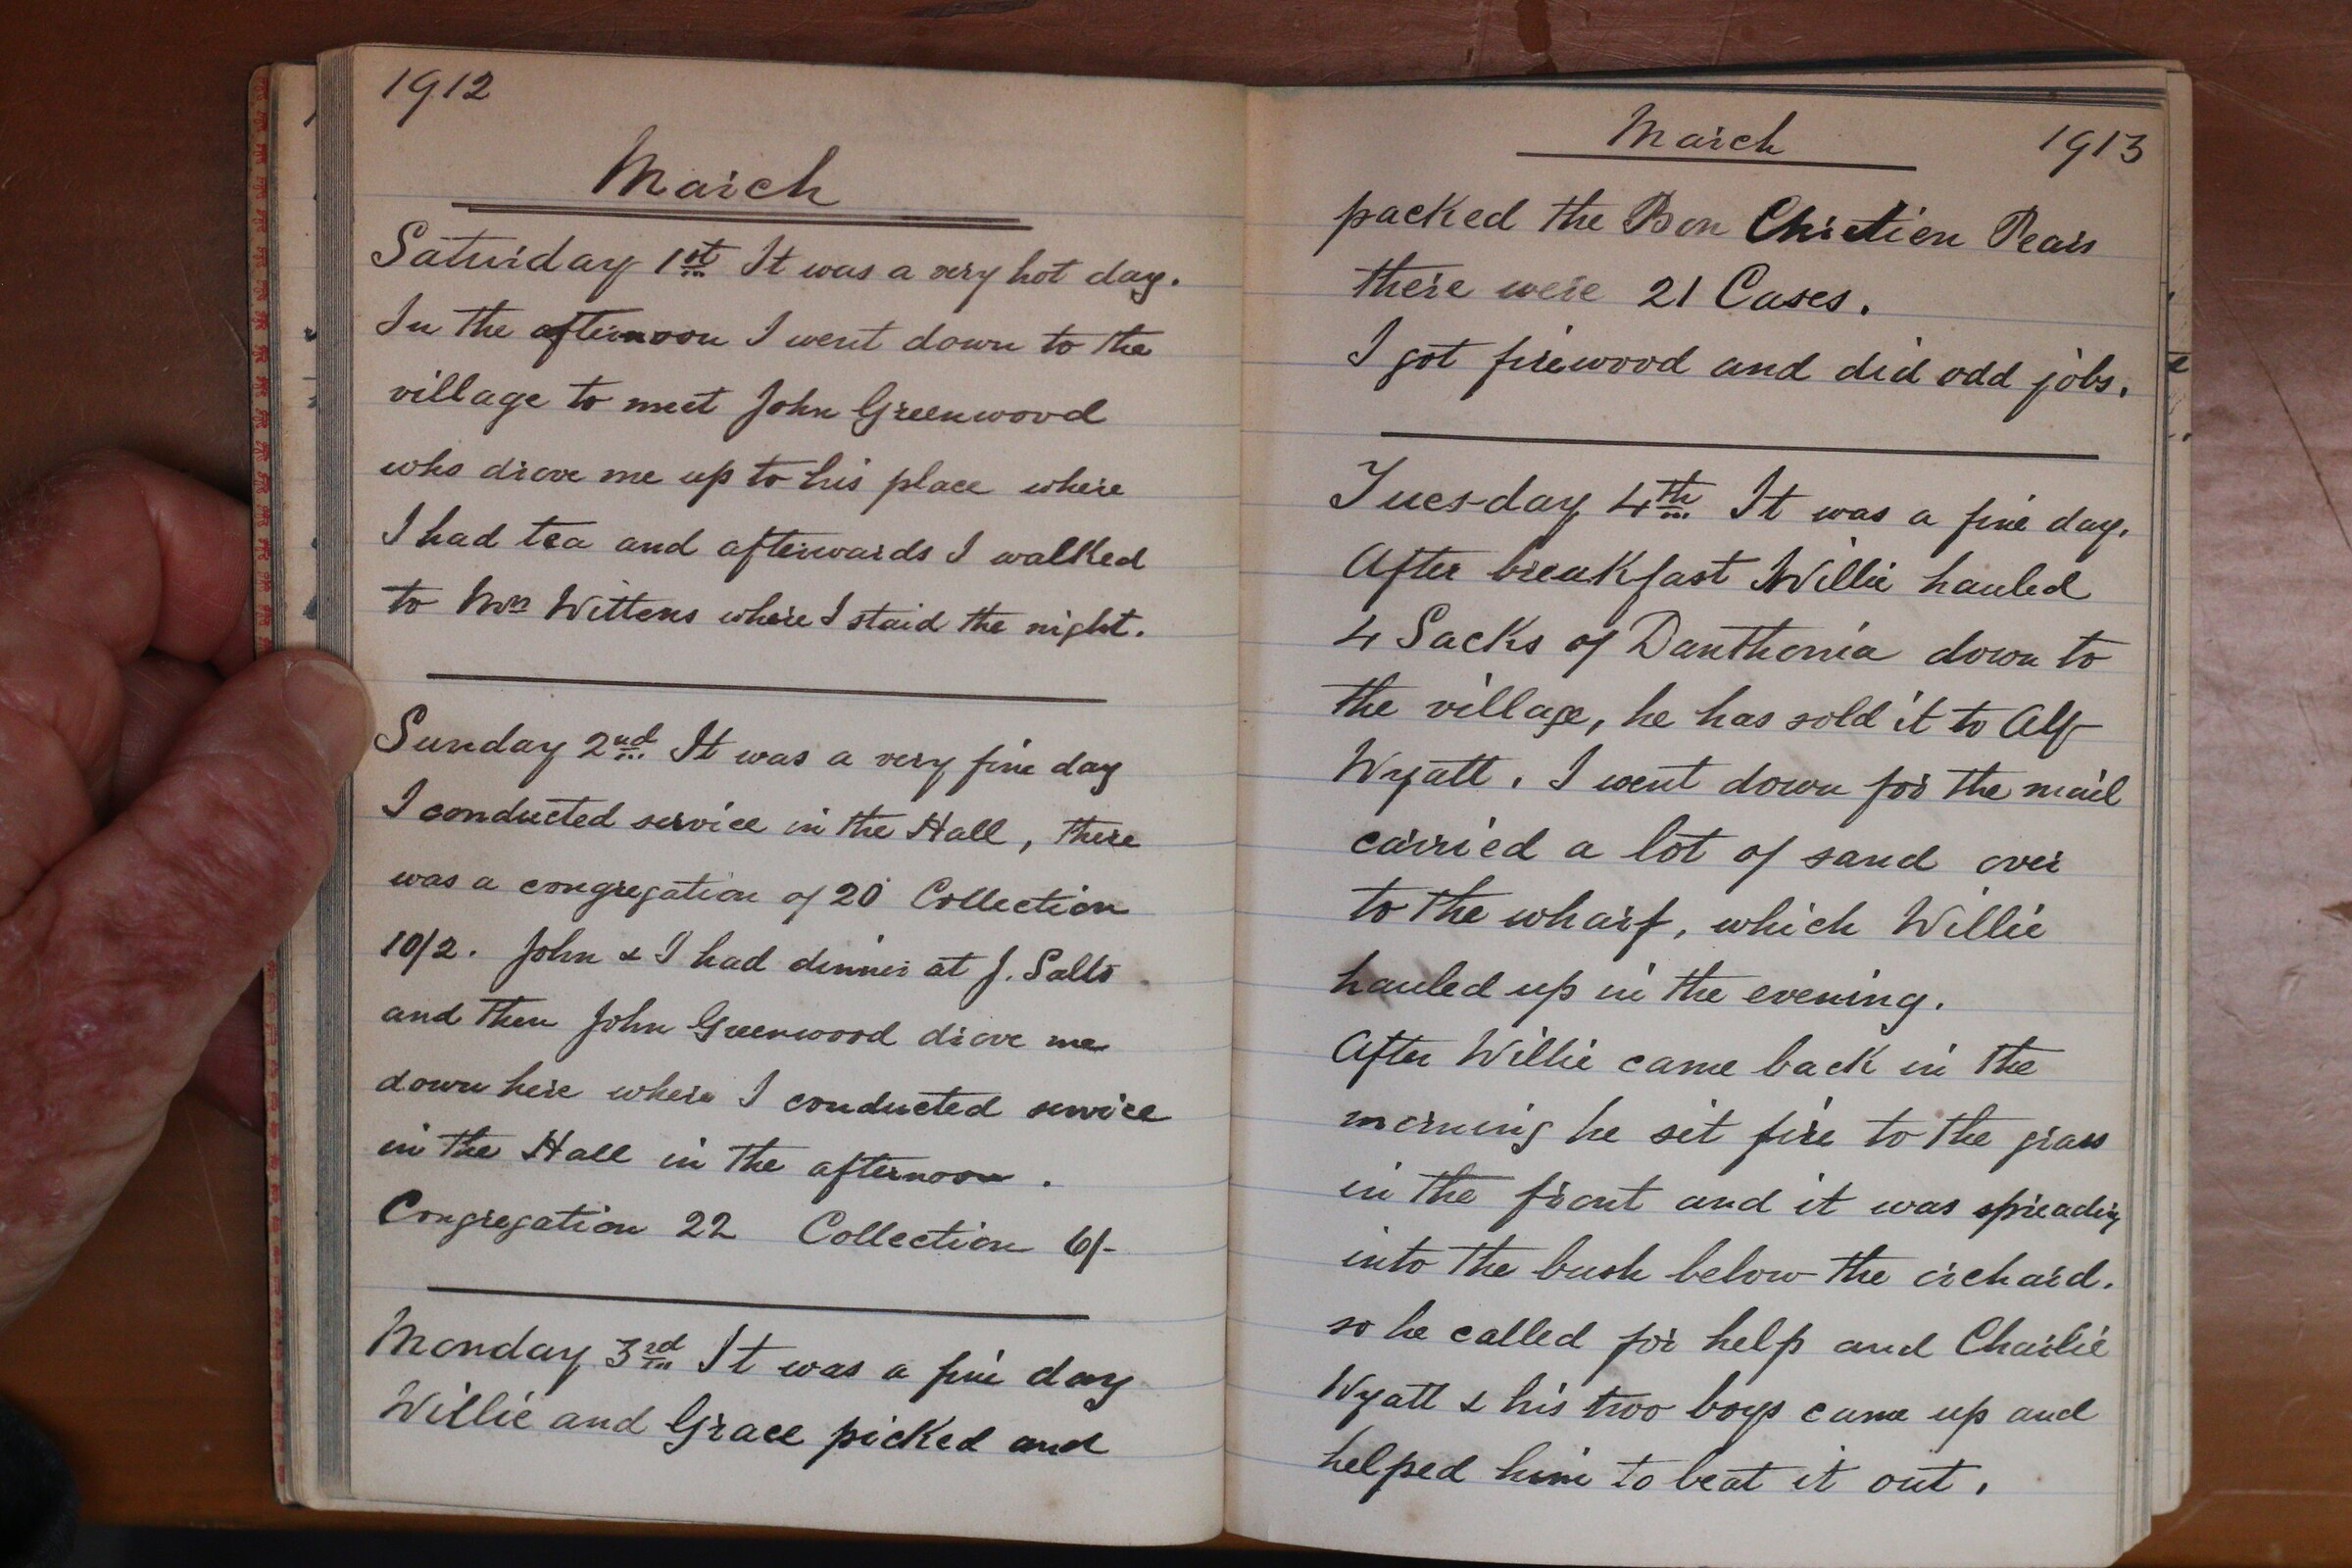 1912
March
Saturday 1st It was a very hot day.
In the afternoon I went down to the
village to meet John Greenwood
who drove me up to his place where
I had tea and afterwards I walked
to Mrs Wittens where I staid the night.
Sunday 2nd It was a very fine day
I conducted service in the Hall, there
was a congregation of 20 Collection
10/2. John & I had dinner at J. Salts
and then John Greenwood drove me
down here where I conducted service
in the Hall in the afternoon.
Congregation 22 Collection 6/-
Monday 3rd It was a fine day
Willie and Grace picked and
March 1913
packed the Bon Chretien Pears
there were 21 Cases.
I got firewood and did odd jobs.
Tuesday 4th It was a fine day.
After breakfast Willie hauled
4 Sacks of Danthonia down to
the village, he has sold it to Alf
Wyatt. I went down for the mail
carried a lot of sand over
to the wharf, which Willie
hauled up in the evening.
After Willie came back in the
morning he set fire to the grass
in the front and it was spreading
into the bush below the orchard.
so he called for help and Charlie
Wyatt & his two boys came up and
helped him to beat it out.